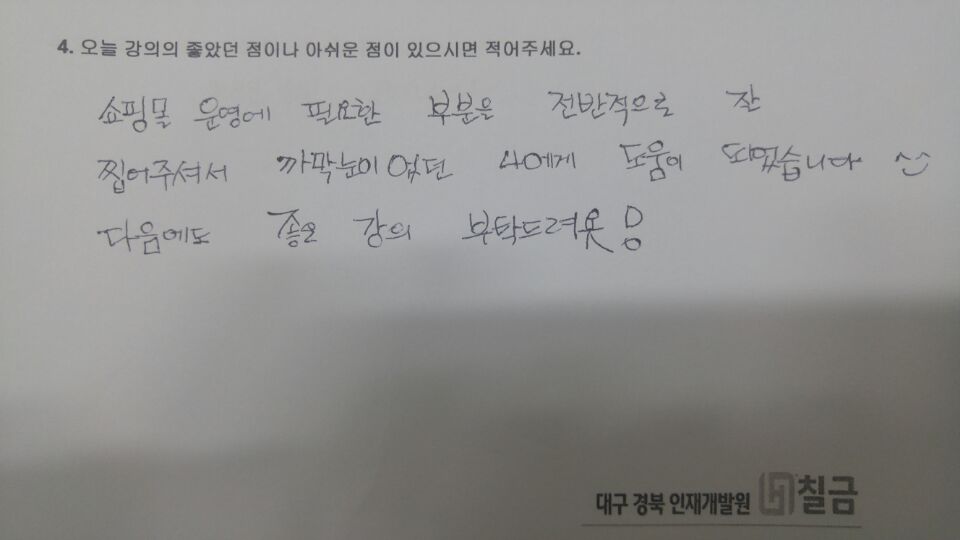 4. 오늘 강의의 좋았던 점이나 아쉬운 점이 있으시면 적어주세요.
쇼핑몰 운영에 필요한 부분을 전반적으로 잘
찝어주셔서 까막눈이었던 나에게 도움이 되었습니다 ^^
다음에도 좋은 강의 부탁드려욧
대구 경북 인재개발원 칠금